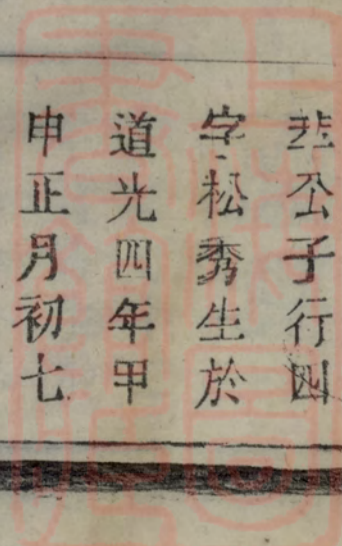 公子行四
字松秀生於
道光四年甲
申正月初七